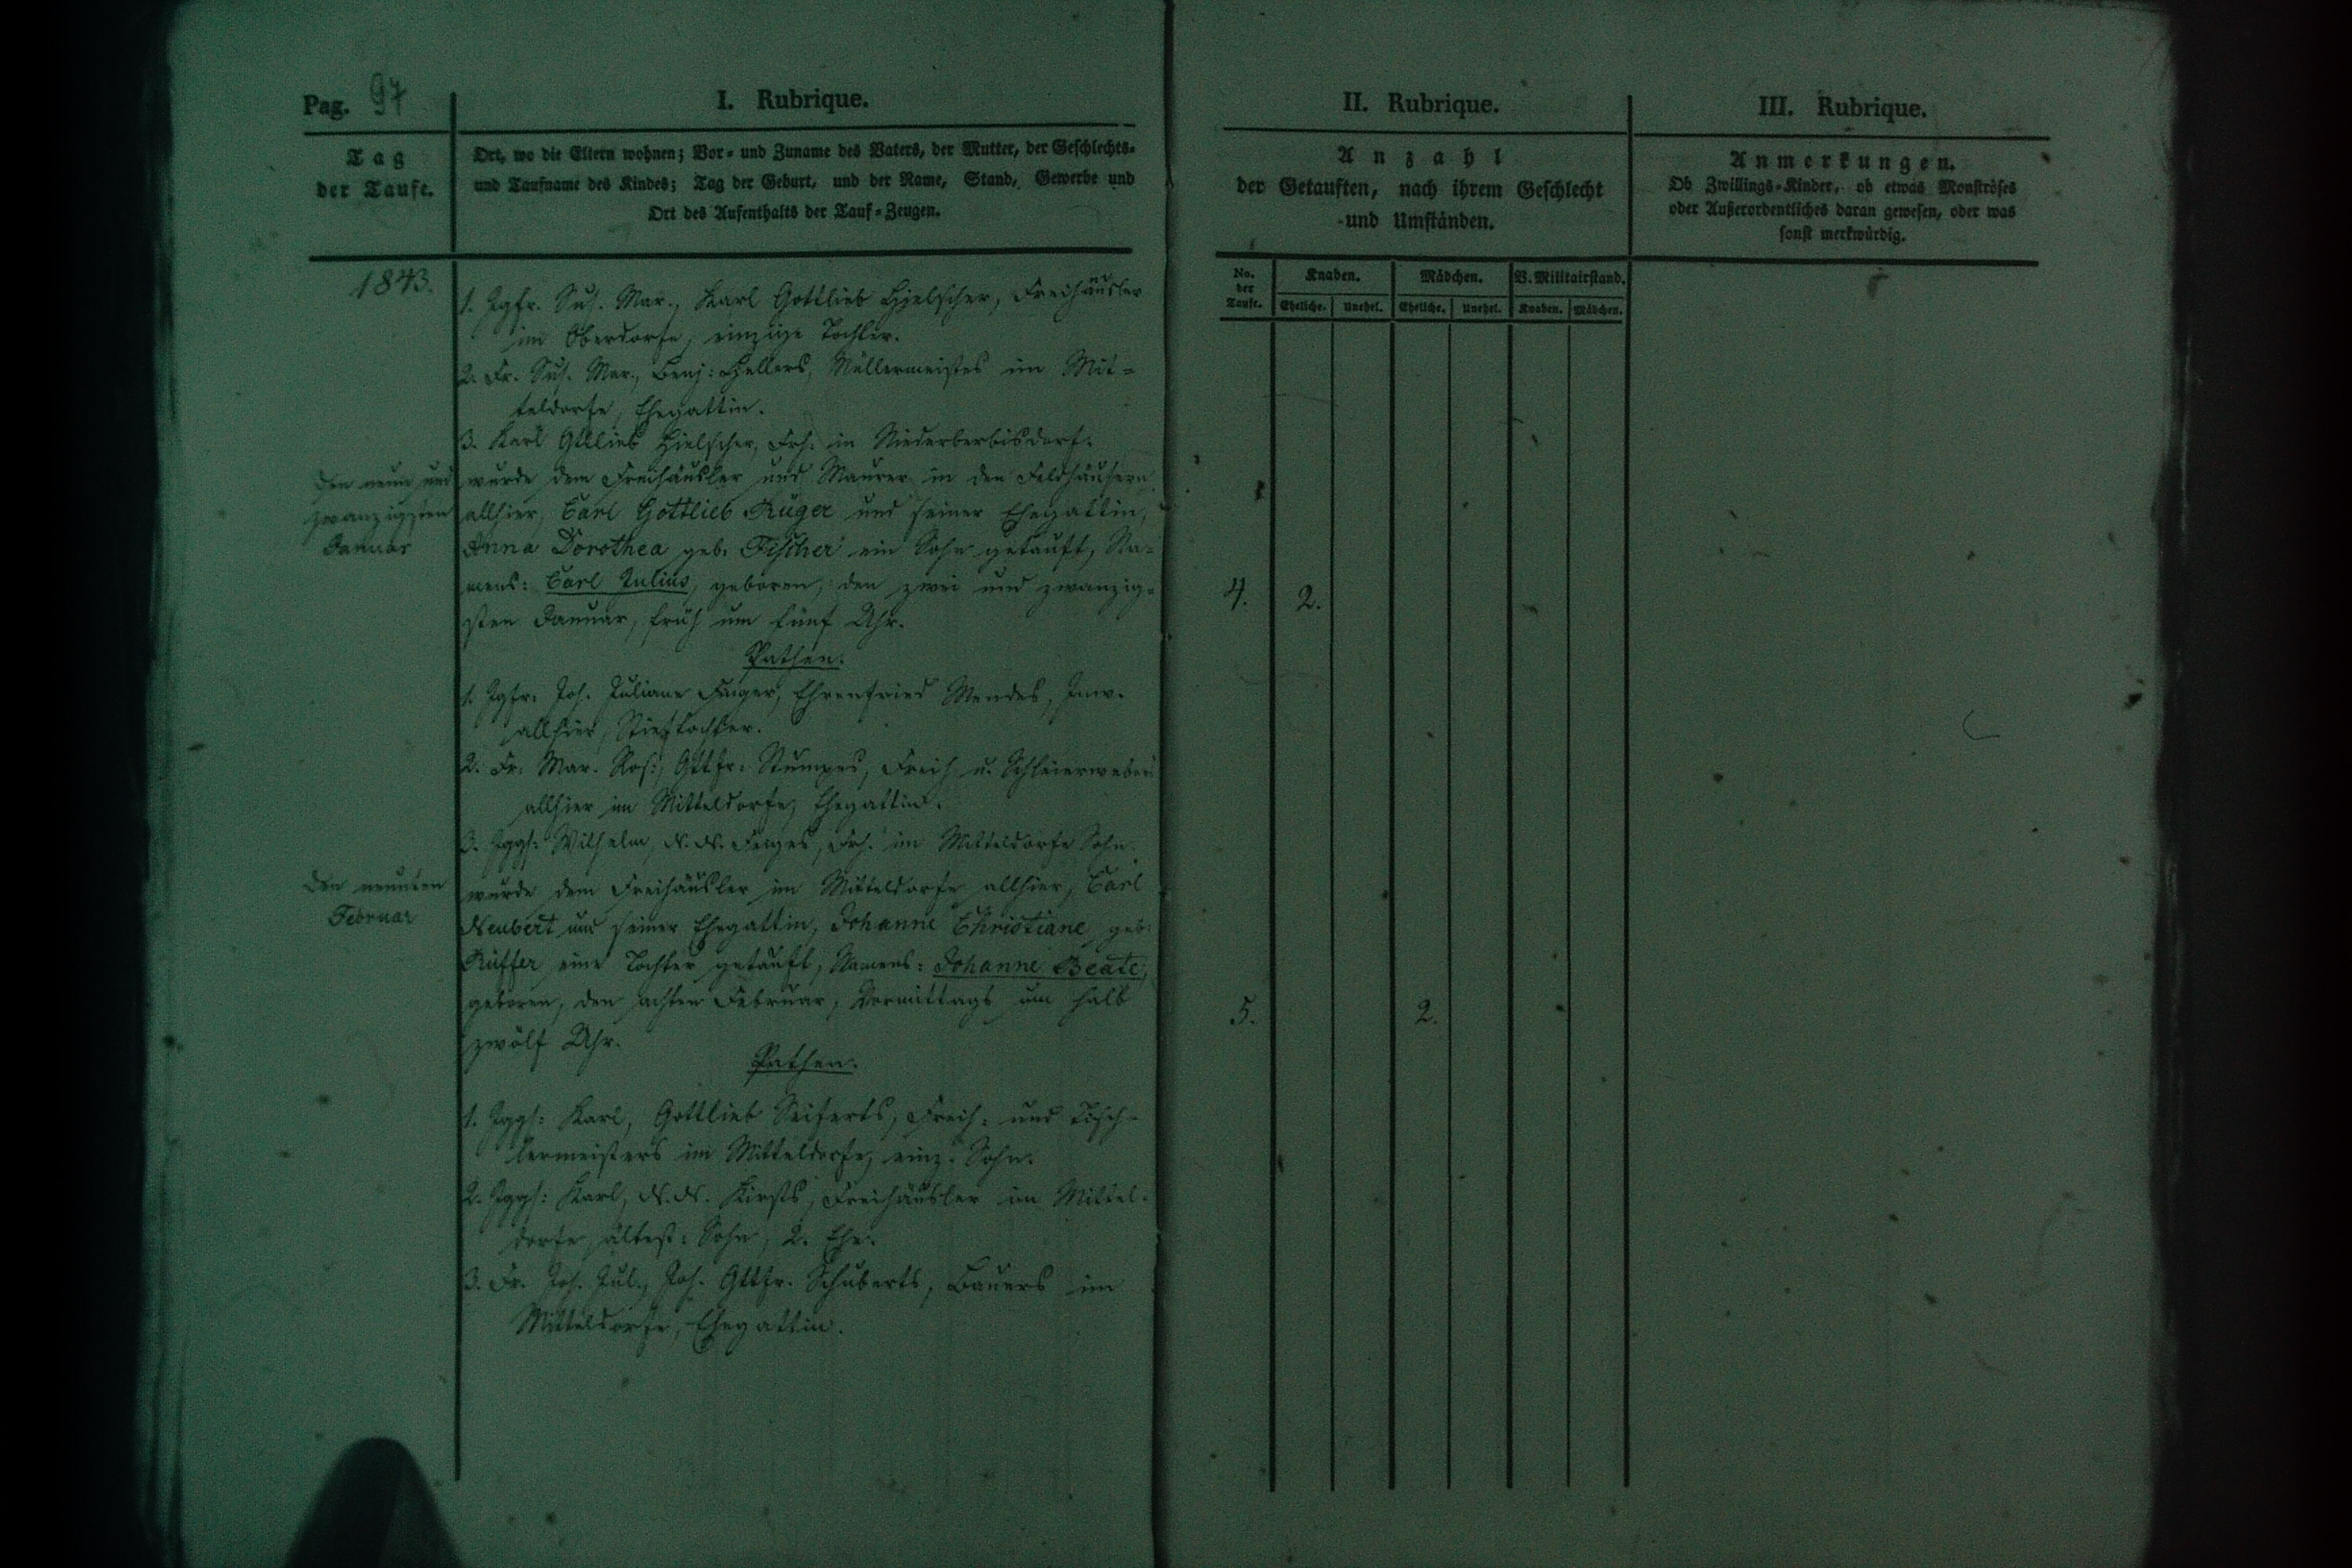 Pag. 97
I. Rubrique.
Tag
der Taufe.
Ort, wo die Eltern wohnen; Vor- und Zuname des Vaters, der Mutter, der Geschlechts-
und Taufname des Kindes; Tag der Geburt, und der Name, Stand, Gewerbe und
Ort des Aufenthalts der Tauf-Zeugen.
1843.
1. Jgfr. Sus. Mar., Karl Gottlieb Hielscher, Freihäusler
im Oberdorfe, einzige Tochter.
2. Fr. Sus. Mar., Benj: Hellers, Müllermeisters im Mit-
teldorfe, Ehegattin.
3. Karl Gttlieb Hielscher, Frh. in Niederberbisdorf.
Den neun und
zwanzigsten
Januar
wurde dem Freihäusler und Maurer in den Feldhäusern
allhier, Carl Gottlieb Krüger und seiner Ehegattin,
Anna Dorothea geb. Fischer ein Sohn getauft, Na-
mens: Carl Julius, geboren, den zwei und zwanzig-
sten Januar, früh um fünf Uhr.
Pathen.
1. Jgfr. Joh. Juliane Ehrenfried Inw.
allhier, Stieftochter.
2. Fr. Mar. Ros:, Gttfr: Freih. u. Schleierweber
allhier im Mitteldorfe, Ehegattin.
3. Jggs: Wilhelm, N. N. Frh. im Mitteldorfe Sohn.
Den neunten
Februar
wurde dem Freihäusler im Mitteldorfe allhier, Carl
Neubert und seiner Ehegattin, Johanne Christiane, geb:
Rüffer eine Tochter getauft, Namens: Johanne Beate,
geboren, den achten Februar, Vormittags um halb
zwölf Uhr.
Pathen.
1. Jggs: Karl, Gottlieb Seiferts, Freih: und Tisch-
lermeisters im Mitteldorfe, einz. Sohn.
2. Jggs: Karl, N. N. Freihäusler im Mittel-
dorfe, ältest: Sohn, 2. Ehe.
3. Fr. Joh. Jul., Joh. Gttfr. Schuberts, Bauers im
Mitteldorfe, Ehegattin.
II. Rubrique.
Anzahl
der Getauften, nach ihrem Geschlecht
und Umständen.
No.
der
Taufe.
Knaben.
Mädchen.
V. Militairstand.
Eheliche. Unehel. Eheliche. Unehel. Knaben. Mädchen.
4. 2.
5. 2.
III. Rubrique.
Anmerkungen.
Ob Zwillings-Kinder, ob etwas Monströses
oder Außerordentliches daran gewesen, oder was
sonst merkwürdig.